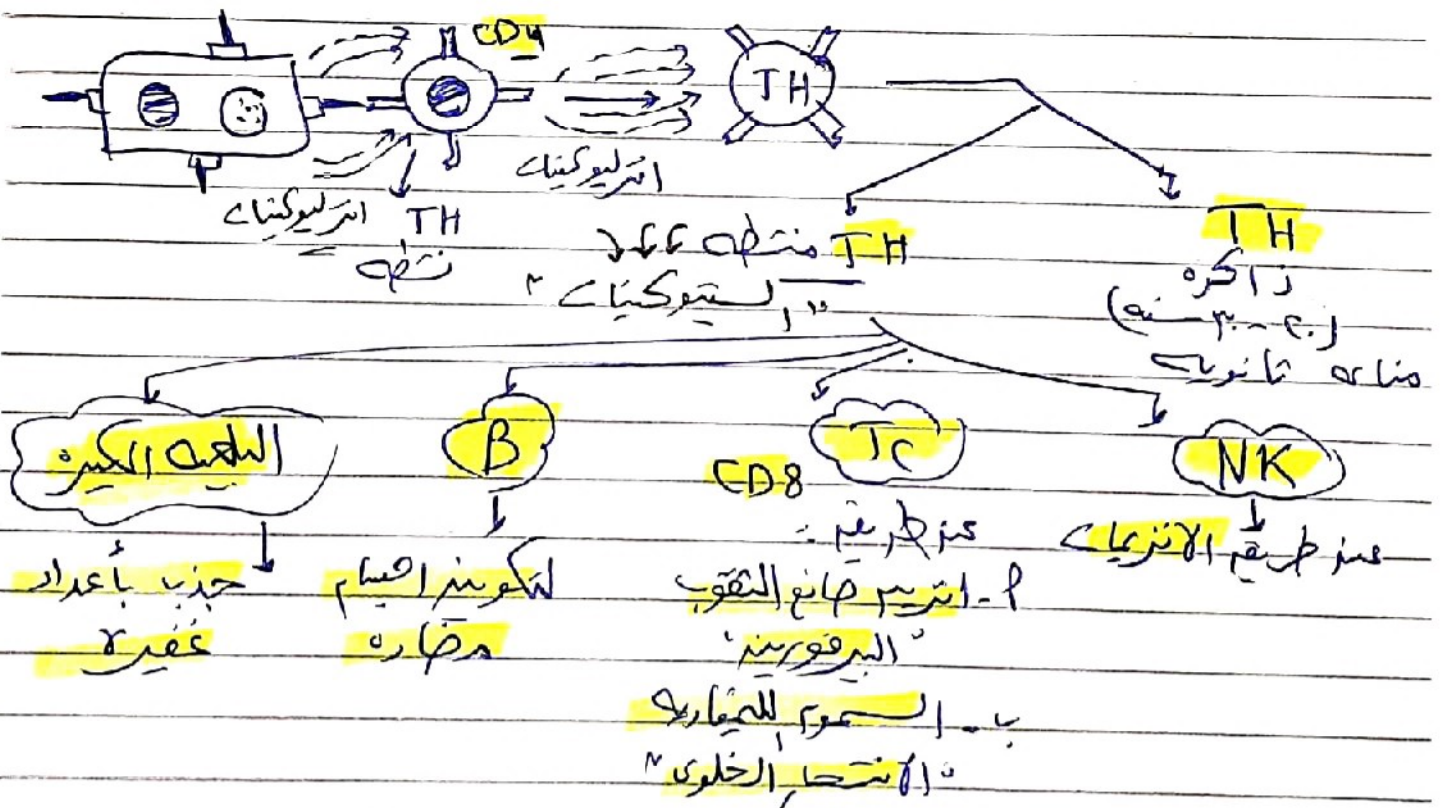 CD4
TH
انترليوكينات
انترليوكينات
TH
نشطه
TH منشطه
"السيتوكينات"
TH
ذاكره
(٢٠ - ٣٠ سنه)
مناعه ثانويه
البلعميه الكبيره
B
Tc
CD8
NK
جذب بأعداد
غفيره
لتكوين اجسام
مضاده
عن طريق :
أ - انزيم صانع الثقوب
"البرفورين"
ب - السموم الليمفاويه
"الانتحار الخلوى"
عن طريق الانزيمات